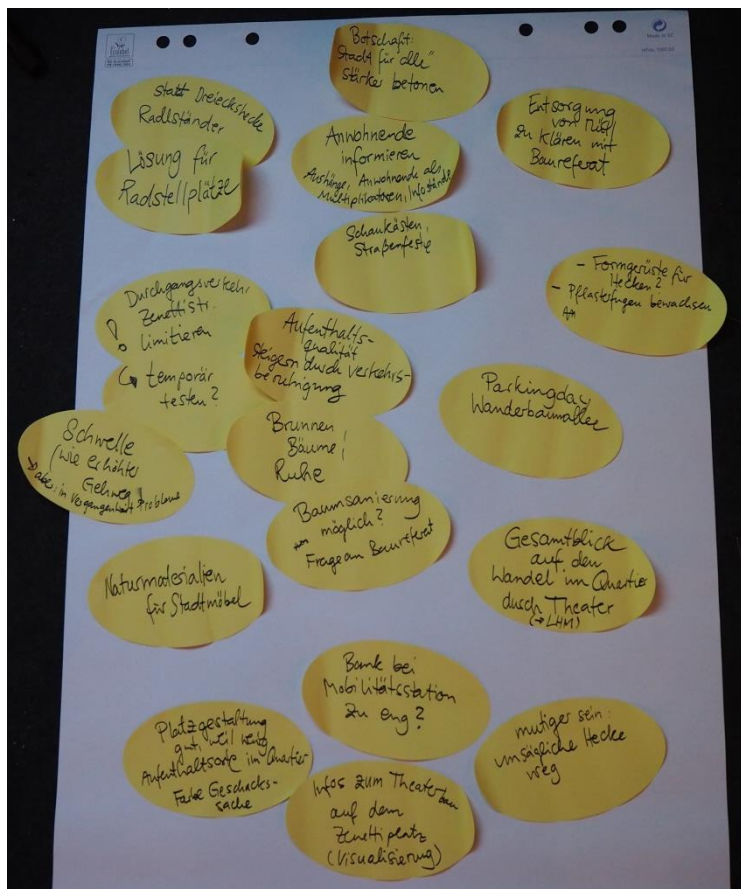 Botschaft:
„Stadt für alle"
stärker betonen
statt Dreieckshecke
Radlständer
Lösung für
Radstellplätze
Anwohnende
informieren
Aushänge, Anwohnende als
Multiplikatoren, Infostände
Schaukästen,
Straßenfeste
Entsorgung
von Müll
zu klären mit
Baureferat
- Formgerüste für
Hecken?
- Pflasterfugen bewachsen
Durchgangsverkehr
Zenettistr.
! limitieren
↳ temporär
testen?
Aufenthalts-
qualität
steigern durch Verkehrs-
beruhigung
Brunnen
Bäume!
Ruhe
Parkingday
Wanderbaumallee
Schwelle
(wie erhöhter
Gehweg)
→ aber: in Vergangenheit Probleme
Baumsanierung
möglich?
Frage an Baureferat
Gesamtblick
auf den
Wandel im Quartier
durch Theater
(→ LHM)
Naturmaterialien
für Stadtmöbel
Bank bei
Mobilitätsstation
zu eng?
Platzgestaltung
gut, weil wenig
Aufenthaltsorte im Quartier
Farbe Geschacks-
sache
mutiger sein:
unsägliche Hecke
weg
Infos zum Theaterbau
auf dem
Zenettiplatz
(Visualisierung)
Made in EC